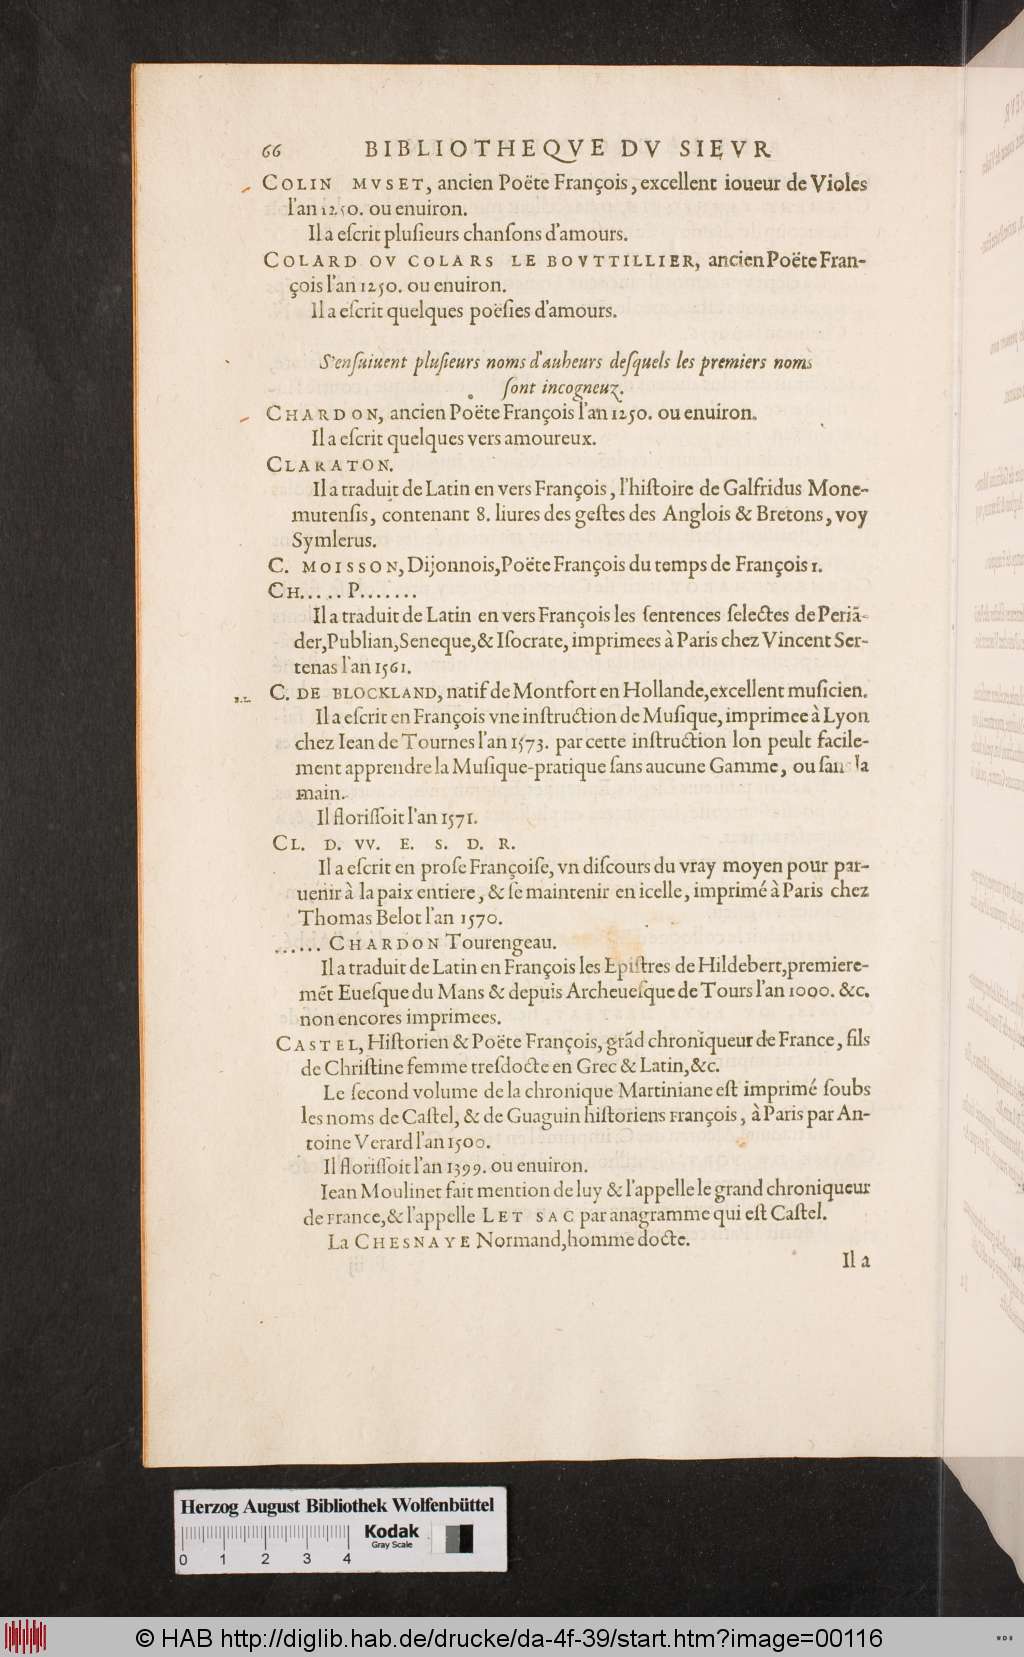 66 BIBLIOTHEQVE DV SIEVR
COLIN MVSET, ancien Poëte François, excellent ioueur de Violes
l'an 1250. ou enuiron.
Il a eſcrit pluſieurs chanſons d'amours.
COLARD OV COLARS LE BOVTTILLIER, ancien Poëte Fran-
çois l'an 1250. ou enuiron.
Il a eſcrit quelques poëſies d'amours.
S'enſuiuent pluſieurs noms d'autheurs deſquels les premiers noms
ſont incogneuz.
CHARDON, ancien Poëte François l'an 1250. ou enuiron.
Il a eſcrit quelques vers amoureux.
CLARATON.
Il a traduit de Latin en vers François, l'hiſtoire de Galfridus Mone-
mutenſis, contenant 8. liures des geſtes des Anglois & Bretons, voy
Symlerus.
C. MOISSON, Dijonnois, Poëte François du temps de François 1.
CH..... P.......
Il a traduit de Latin en vers François les ſentences ſelectes de Periã-
der, Publian, Seneque, & Iſocrate, imprimees à Paris chez Vincent Ser-
tenas l'an 1561.
C. DE BLOCKLAND, natif de Montfort en Hollande, excellent muſicien.
Il a eſcrit en François vne inſtruction de Muſique, imprimee à Lyon
chez Iean de Tournes l'an 1573. par cette inſtruction lon peult facile-
ment apprendre la Muſique-pratique ſans aucune Gamme, ou ſans la
main.
Il floriſſoit l'an 1571.
CL. D. VV. E. S. D. R.
Il a eſcrit en proſe Françoiſe, vn diſcours du vray moyen pour par-
uenir à la paix entiere, & ſe maintenir en icelle, imprimé à Paris chez
Thomas Belot l'an 1570.
...... CHARDON Tourengeau.
Il a traduit de Latin en François les Epiſtres de Hildebert, premiere-
mẽt Eueſque du Mans & depuis Archeueſque de Tours l'an 1090. &c.
non encores imprimees.
CASTEL, Hiſtorien & Poëte François, grãd chroniqueur de France, fils
de Chriſtine femme treſdocte en Grec & Latin, &c.
Le ſecond volume de la chronique Martiniane eſt imprimé ſoubs
les noms de Caſtel, & de Guaguin hiſtoriens François, à Paris par An-
toine Verard l'an 1500.
Il floriſſoit l'an 1399. ou enuiron.
Iean Moulinet fait mention de luy & l'appelle le grand chroniqueur
de France, & l'appelle LET SAC par anagramme qui eſt Caſtel.
La CHESNAYE Normand, homme docte.
Il a
Herzog August Bibliothek Wolfenbüttel
0 1 2 3 4
Kodak
Gray Scale
© HAB http://diglib.hab.de/drucke/da-4f-39/start.htm?image=00116